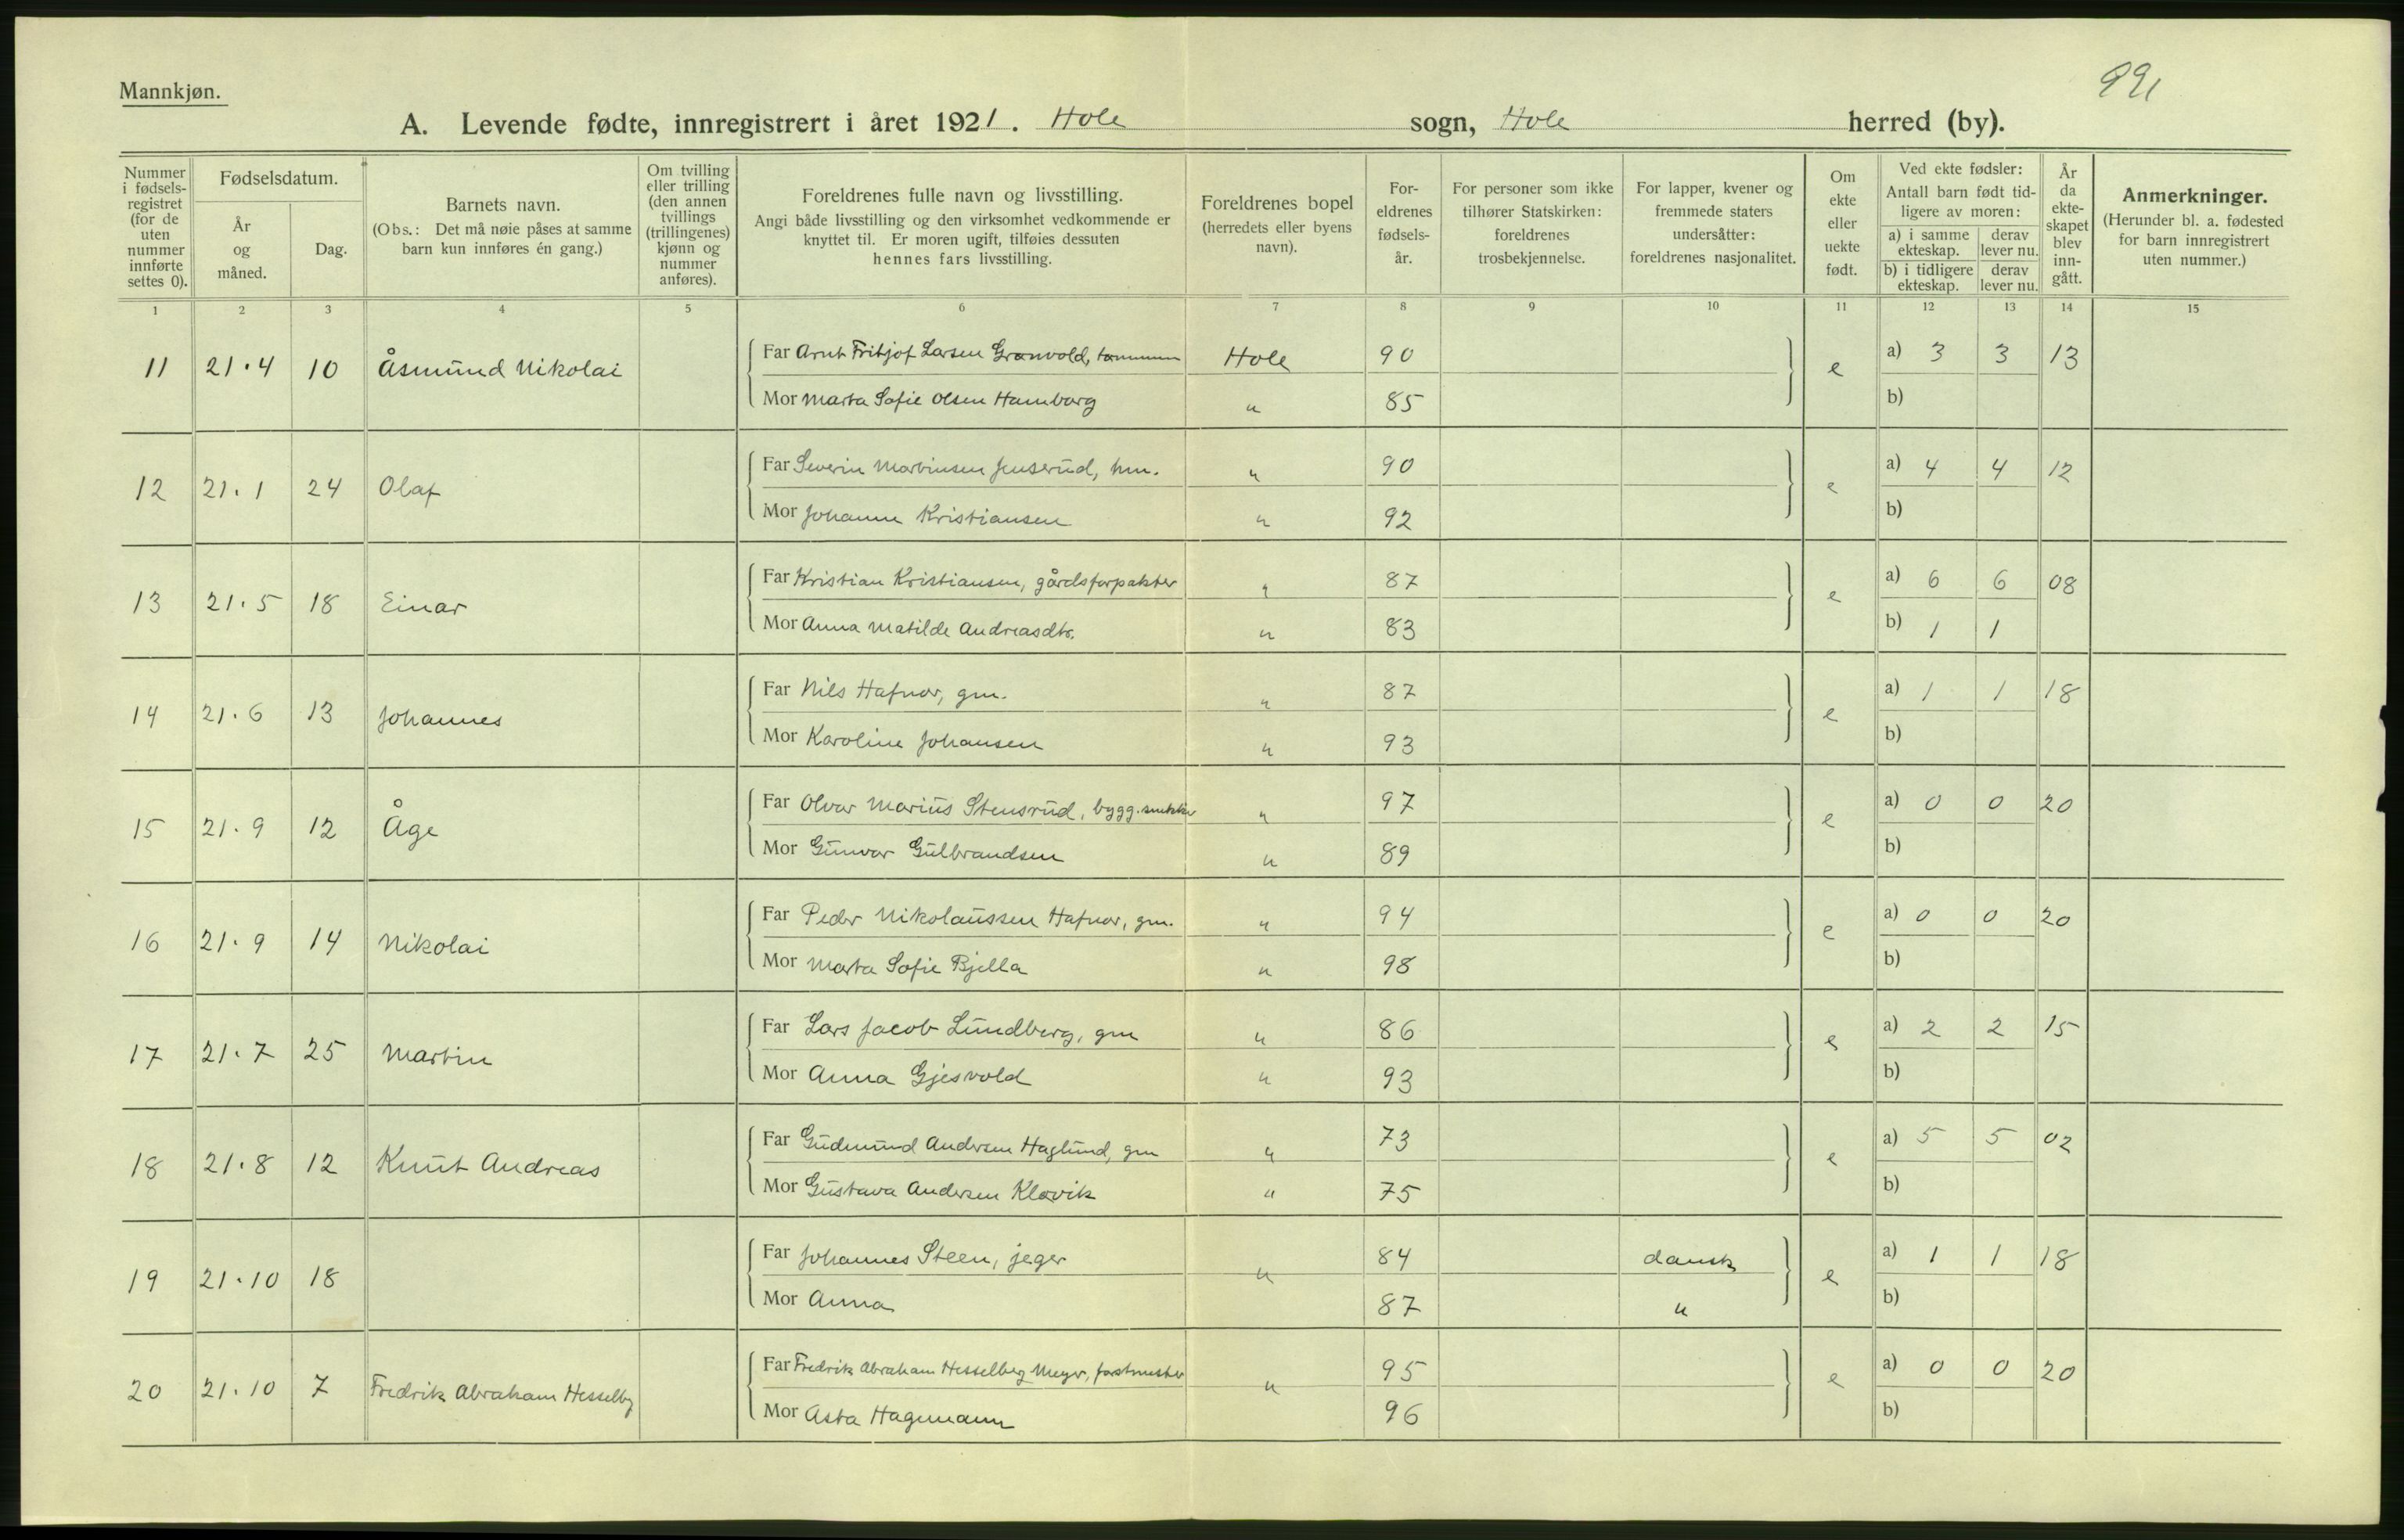 Mannkjøn.
991
A. Levende fødte, innregistrert i året 1921. Hole sogn, Hole herred (by).
Nummer i fødsels- registret (for de uten nummer innførte settes 0).
Fødselsdatum.
År og måned.
Dag.
Barnets navn.
(Obs.: Det må nøie påses at samme barn kun innføres én gang.)
Om tvilling eller trilling (den annen tvillings (trillingenes) kjønn og nummer anføres).
Foreldrenes fulle navn og livsstilling.
Angi både livsstilling og den virksomhet vedkommende er knyttet til. Er moren ugift, tilføies dessuten hennes fars livsstilling.
Foreldrenes bopel (herredets eller byens navn).
For- eldrenes fødsels- år.
For personer som ikke tilhører Statskirken: foreldrenes trosbekjennelse.
For lapper, kvener og fremmede staters undersåtter: foreldrenes nasjonalitet.
Om ekte eller uekte født.
Ved ekte fødsler: Antall barn født tid- ligere av moren:
a) i samme ekteskap. derav lever nu.
b) i tidligere ekteskap. derav lever nu.
År da ekte- skapet blev inn- gått.
Anmerkninger.
(Herunder bl. a. fødested for barn innregistrert uten nummer.)
1 2 3 4 5 6 7 8 9 10 11 12 13 14 15
11 21.4 10 Åsmund Nikolai Far Arnt Fritjof Larsen Granvold, Hole 90 e a) 3 3 13
Mor Marta Sofie Olsen Hamborg " 85 b)
12 21.1 24 Olaf Far Severin Martinsen Jenserud, hm. " 90 e a) 4 4 12
Mor Johanne Kristiansen " 92 b)
13 21.5 18 Einar Far Kristian Kristiansen, gårdsforpakter " 87 e a) 6 6 08
Mor Anna Matilde Andreasdtr. " 83 b) 1 1
14 21.6 13 Johannes Far Nils Hafnor, gm. " 87 e a) 1 1 18
Mor Karoline Johansen " 93 b)
15 21.9 12 Åge Far Olvar Marius Stensrud, bygg.snekker " 97 e a) 0 0 20
Mor Gunvor Gulbrandsen " 89 b)
16 21.9 14 Nikolai Far Peder Nikolaussen Hafnor, gm. " 94 e a) 0 0 20
Mor Marta Sofie Bjella " 98 b)
17 21.7 25 Martin Far Lars Jacob Lundberg, gm " 86 e a) 2 2 15
Mor Anna Gjesvold " 93 b)
18 21.8 12 Knut Andreas Far Gudmund Andersen Haglund, gm " 73 e a) 5 5 02
Mor Gustava Andersen Klovik " 75 b)
19 21.10 18 Far Johannes Steen, jeger " 84 dansk e a) 1 1 18
Mor Anna 87 " b)
20 21.10 7 Fredrik Abraham Hesselbg Far Fredrik Abraham Hesselberg Meyer, forstmester " 95 e a) 0 0 20
Mor Asta Hagemann 96 b)